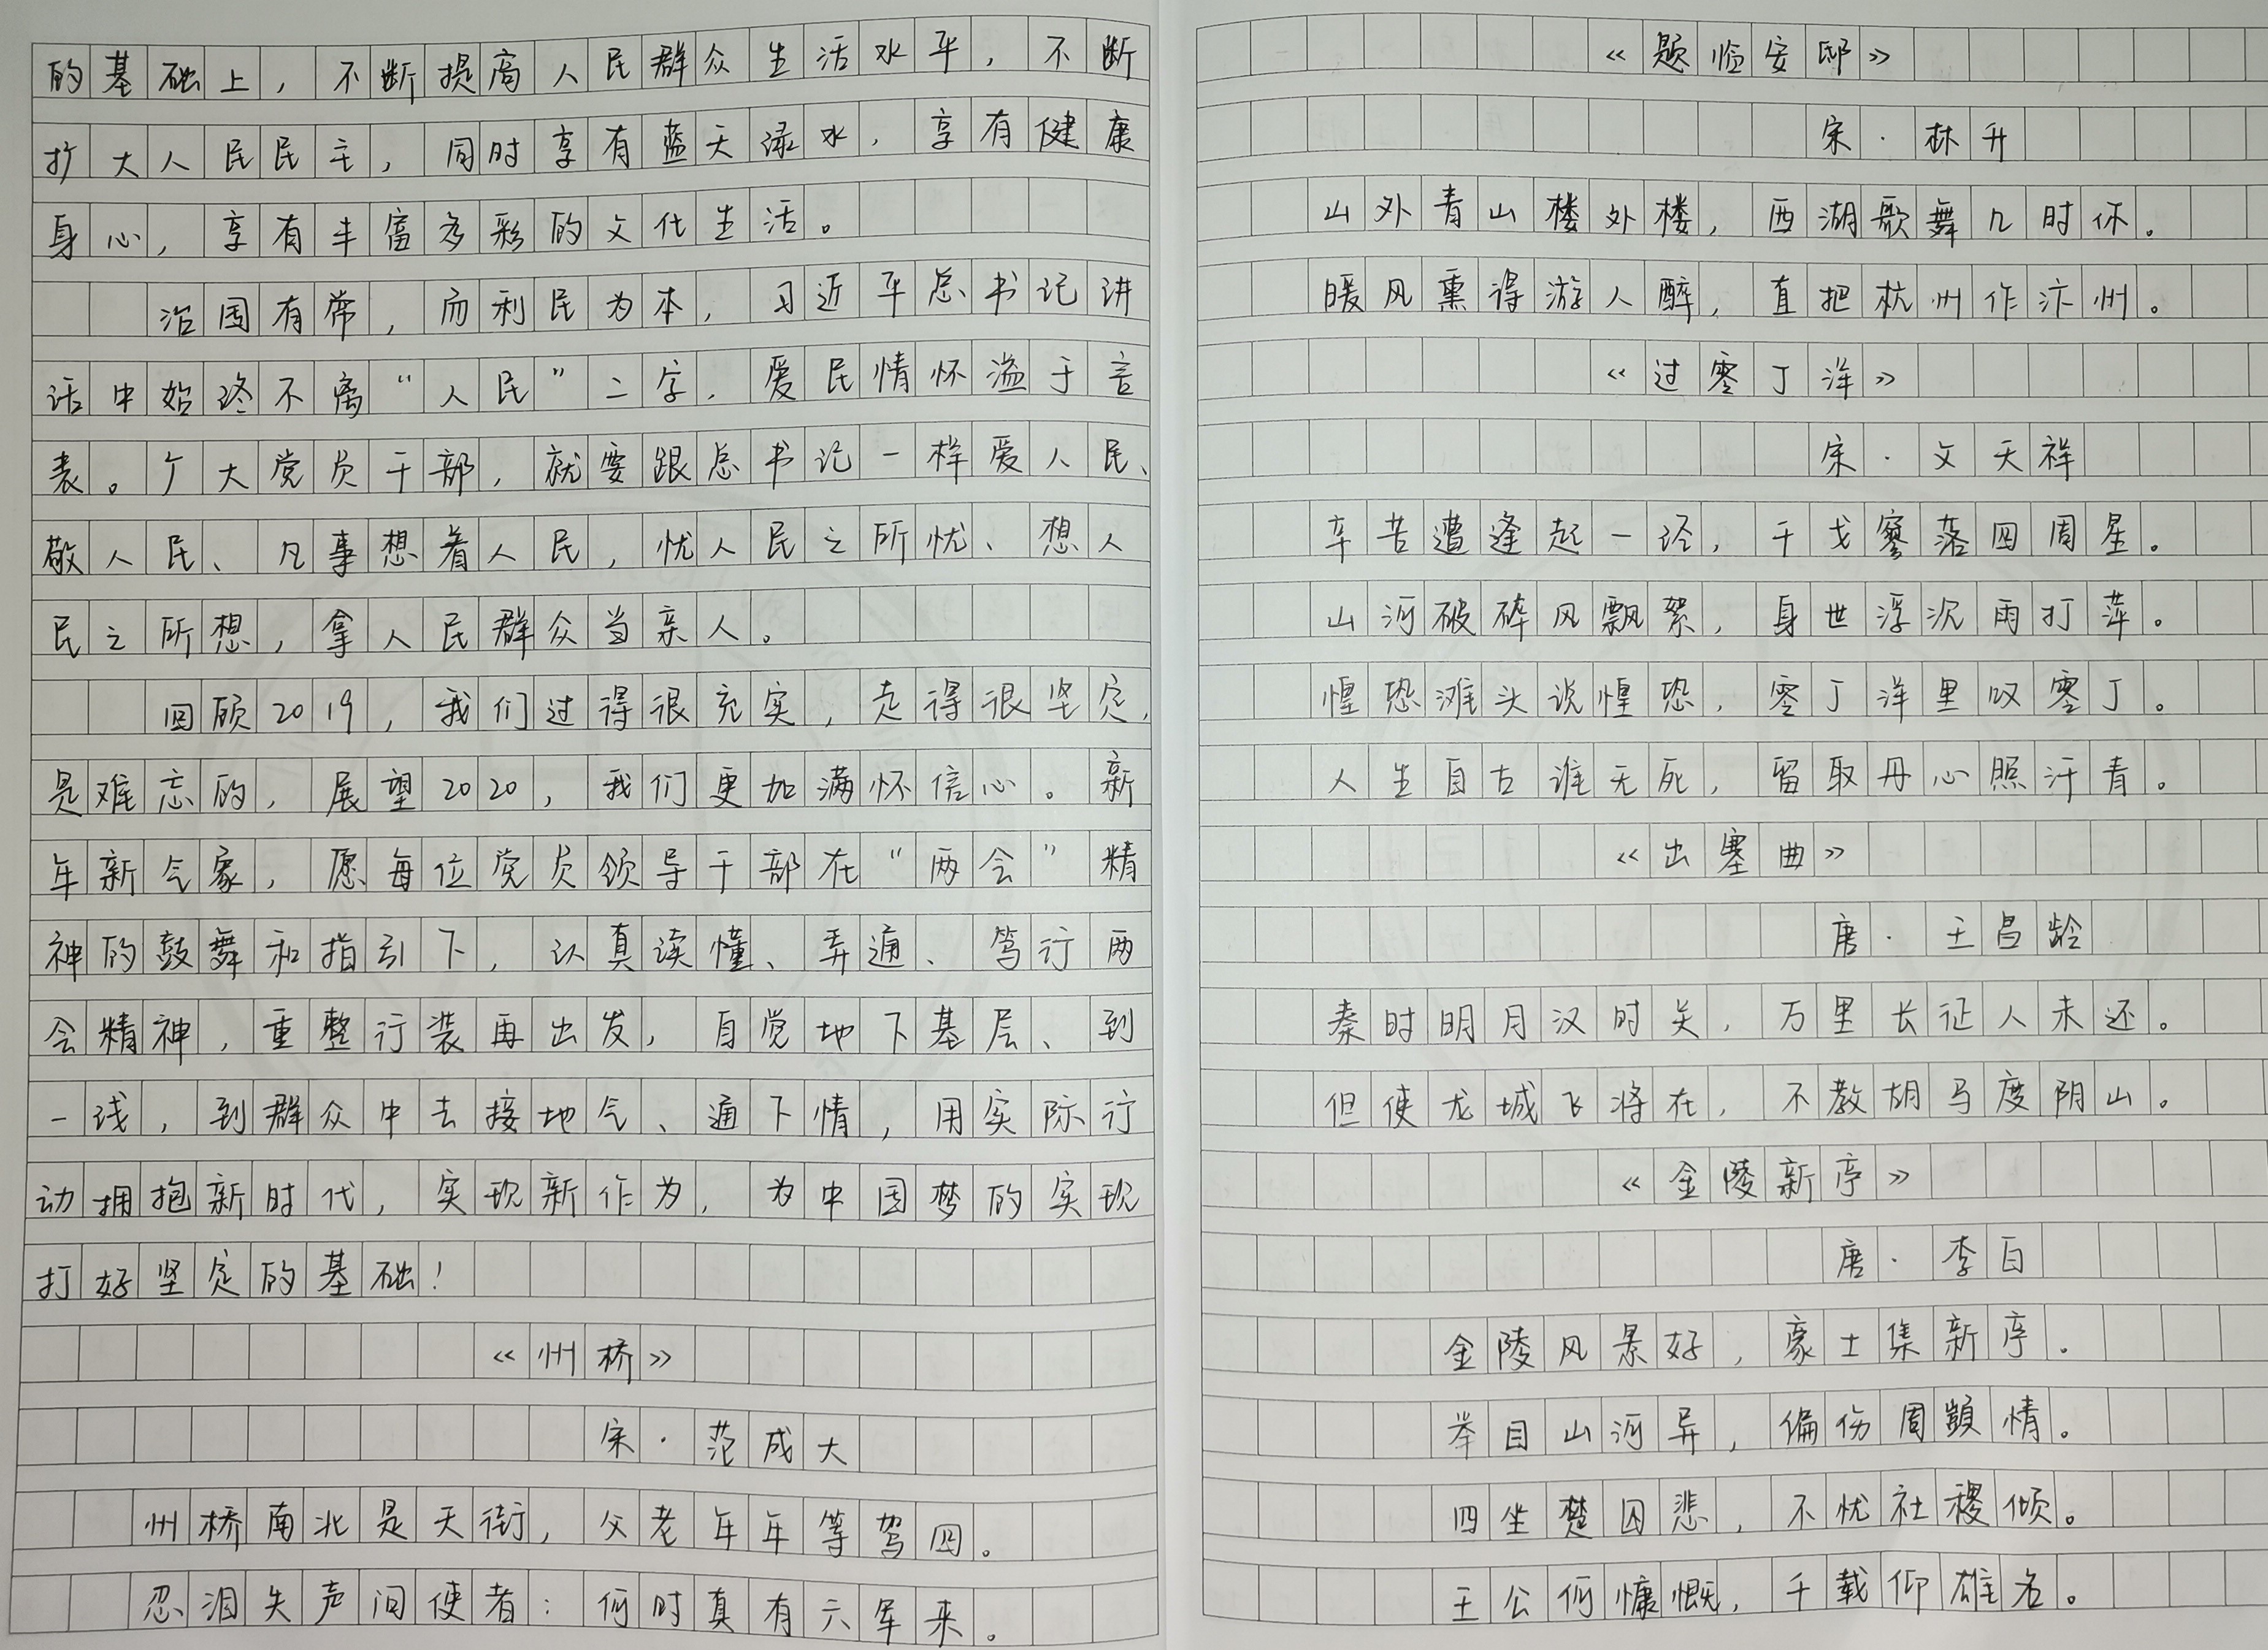 的基础上，不断提高人民群众生活水平，不断
扩大人民民主，同时享有蓝天渌水，享有健康
身心，享有丰富多彩的文化生活。
治国有常，而利民为本，习近平总书记讲
话中始终不离“人民”二字，爱民情怀溢于言
表。广大党员干部，就要跟总书记一样爱人民、
敬人民、凡事想着人民，忧人民之所忧、想人
民之所想，拿人民群众当亲人。
回顾2019，我们过得很充实，走得很坚定，
是难忘的，展望2020，我们更加满怀信心。新
年新气象，愿每位党员领导干部在“两会”精
神的鼓舞和指引下，认真读懂、弄通、笃行两
会精神，重整行装再出发，自觉地下基层、到
一线，到群众中去接地气、通下情，用实际行
动拥抱新时代，实现新作为，为中国梦的实现
打好坚定的基础！
《州桥》
宋·范成大
州桥南北是天街，父老年年等驾回。
忍泪失声问使者：何时真有六军来。
《题临安邸》
宋·林升
山外青山楼外楼，西湖歌舞几时休。
暖风熏得游人醉，直把杭州作汴州。
《过零丁洋》
宋·文天祥
辛苦遭逢起一经，干戈寥落四周星。
山河破碎风飘絮，身世浮沉雨打萍。
惶恐滩头说惶恐，零丁洋里叹零丁。
人生自古谁无死，留取丹心照汗青。
《出塞曲》
唐·王昌龄
秦时明月汉时关，万里长征人未还。
但使龙城飞将在，不教胡马度阴山。
《金陵新亭》
唐·李白
金陵风景好，豪士集新亭．
举目山河异，偏伤周顗情。
四坐楚囚悲，不忧社稷倾。
王公何慷慨，千载仰雄名。